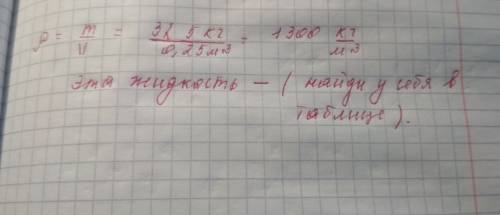 ρ = m/V = 325 кг/0,25 м3 = 1300 кг/м3
Эта жидкость – ( найди у себя в
таблице ).